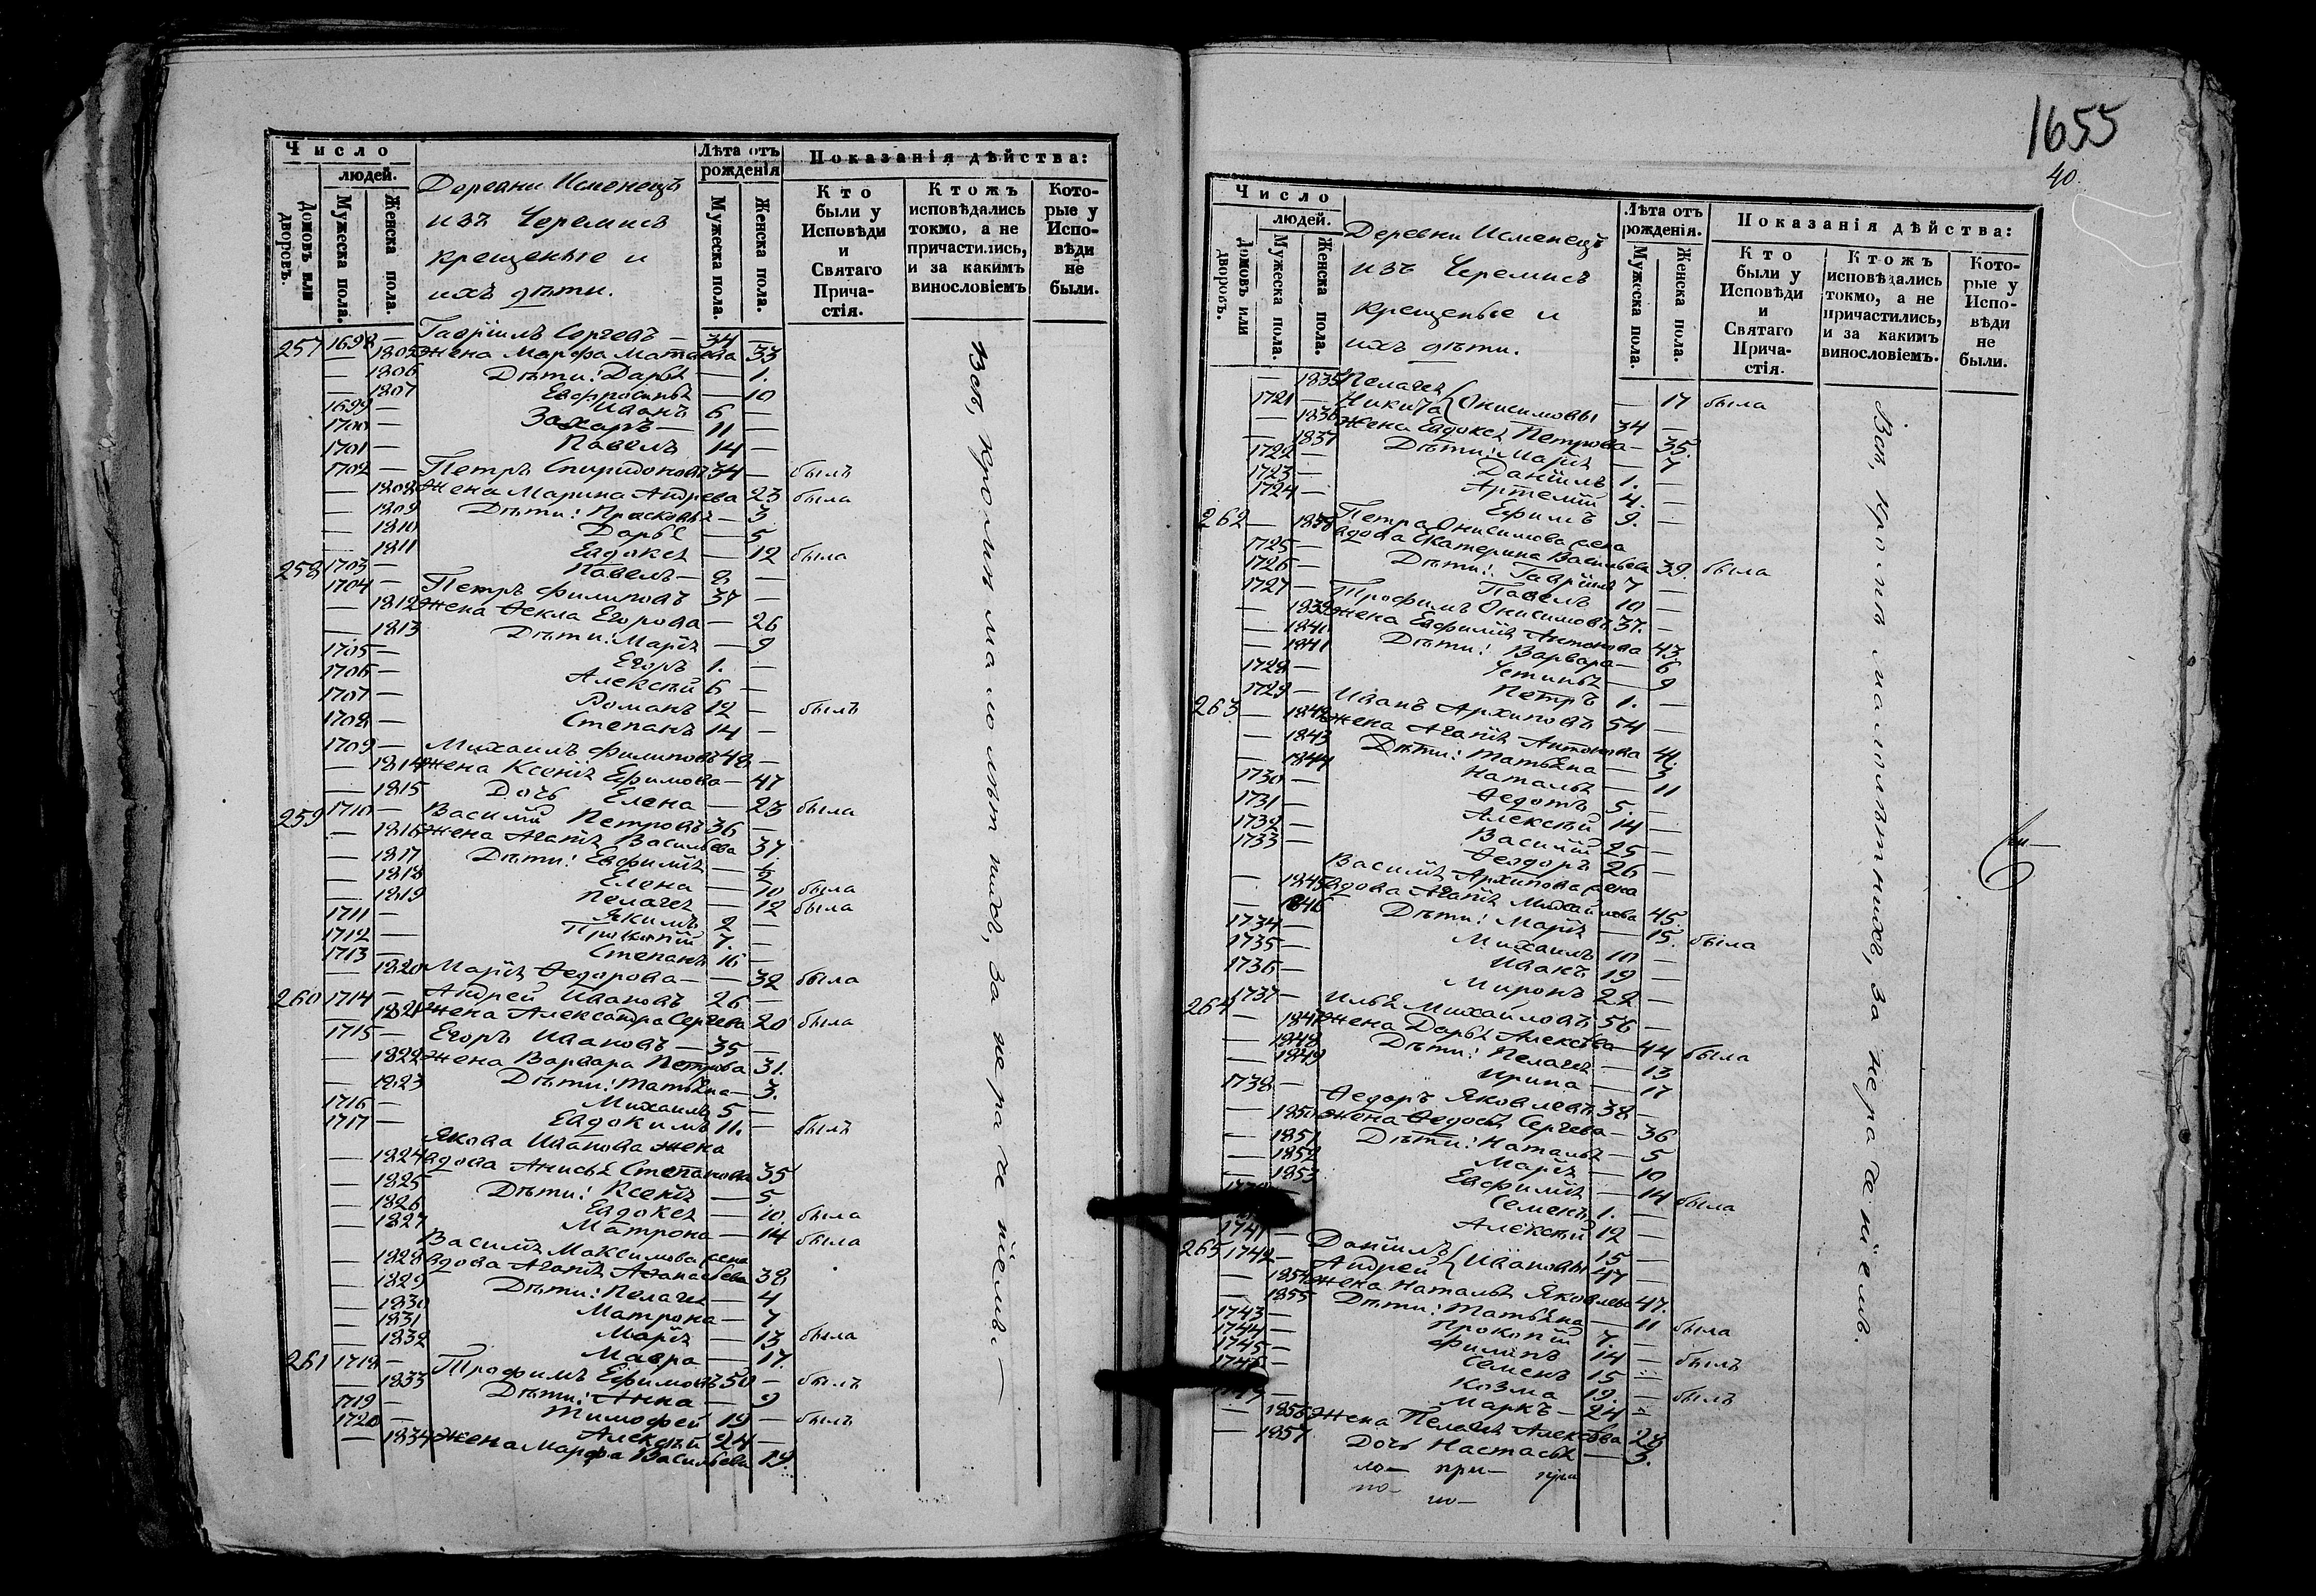 Число
людей.
Домовъ или дворовъ.
Мужеска пола.
Женска пола.
Деревни Исменецъ
изъ Черемисъ
крещеные и
ихъ дѣти.
Лѣта отъ рожденія
Мужеска пола.
Женска пола.
Показанія дѣйства:
Кто были у Исповѣди и Святаго Прича-стія.
Ктожъ исповѣдались токмо, а не причастились, и за какимъ винословіемъ
Кото-рые у Испо-вѣди не были.
257 1698 — Гавріилъ Сергѣевъ — 34 —
— 1805 Жена Марфа Матвѣева 33
— 1806 Дѣти: Дарья — 1.
— 1807 Евфросинья — 10
1699 — Иванъ 6 —
1700 — Захаръ — 11 —
1701 — Павелъ 14 —
1702 — Петръ Спиридоновъ 34 — былъ
— 1808 Жена Марина Андреева 23 была
— 1809 Дѣти: Прасковья — 3
— 1810 Дарья — 5
— 1811 Евдокея — 12 была
258 1703 — Павелъ — 8 —
1704 — Петръ Филиповъ 37 —
— 1812 Жена Ѳекла Егорова — 26
— 1813 Дѣти: Марія — 9
1705 — Егоръ 1. —
1706 — Алексѣй 6 —
1707 — Романъ 12 — былъ
1708 — Степанъ 14 —
1709 — Михаилъ Филиповъ 48 —
— 1814 Жена Ксенія Ефимова — 47
— 1815 Дочь Елена — 23 была
259 1710 — Василій Петровъ 36 —
— 1816 Жена Агапія Васильева 37
— 1817 Дѣти: Евфимія —
— 1818 Елена — 10 была
— 1819 Пелагея — 12 была
1711 — Якимъ 2 —
1712 — Прокопій 7. —
1713 — Степанъ 16 —
— 1820 Марія Ѳедорова — — 32 была
260 1714 — Андрей Ивановъ 26 —
1821 Жена Александра Сергѣева 20 была
1715 — Егоръ Ивановъ — 35 —
— 1822 Жена Варвара Петрова 31.
— 1823 Дѣти: Татьяна — 3.
1716 — Михаилъ 5 —
1717 — Евдокимъ 11. — былъ
Якова Иванова жена
— 1824 вдова Анисья Степанова 35
— 1825 Дѣти: Ксенія — 5
— 1826 Евдокея — 10. была
— 1827 Матрона — 14 была
Василья Максимова жена
— 1828 вдова Агапія Аѳанасьева 38
— 1829 Дѣти: Пелагея — 4
— 1830 Матрона — 7
— 1831 Марія — 13 была
— 1832 Мавра — 17.
261 1718 — Трофимъ Ефимовъ 50 — былъ
— 1833 Дѣти: Анна — 9
1719 — Тимофей 19 — былъ
1720 — Алексѣй 24 —
— 1834 Жена Марфа Васильева 19.
Всѣ, кромѣ малолѣтнихъ, за нераченіемъ. —
1655
40.
Число
людей.
Домовъ или дворовъ.
Мужеска пола.
Женска пола.
Деревни Исменецъ
изъ Черемисъ
крещеные и
ихъ дѣти.
Лѣта отъ рожденія.
Мужеска пола.
Женска пола.
Показанія дѣйства:
Кто были у Исповѣди и Святаго Прича-стія.
Ктожъ исповѣдались токмо, а не причастились, и за какимъ винословіемъ.
Кото-рые у Испо-вѣди не были.
1835 Пелагея — 17 была
1721 — Никита Онисимовы 34 —
— 1836 Жена Евдокея Петрова — 35.
— 1837 Дѣти: Марія — 7
1722 — Даніилъ 1. —
1723 — Артемій 4. —
1724 — Ефимъ 9. —
262 — Петра Онисимова жена
1838 вдова Екатерина Васильева 39. была
1725 — Дѣти: Гавріилъ 7 —
1726 — Павелъ 10 —
1727 — Трофимъ Онисимовъ 37. —
— 1839 Жена Евфимія Антонова 43
— 1840 Дѣти: Варвара — 6
— 1841 Устинья — 9
1728 — Петръ 1. —
263 1729 — Иванъ Архиповъ 54 —
— 1842 Жена Агапія Антонова 41.
— 1843 Дѣти: Татьяна — 3
— 1844 Наталья — 11
1730 — Ѳедотъ 5. —
1731 — Алексѣй 14 —
1732 — Василій 25 —
1733 — Ѳеодоръ 26 —
Василія Архипова жена
— 1845 вдова Агапія Михайлова 45.
— 1846 Дѣти: Марія — 15. была
1734 — Михаилъ 10 —
1735 — Иванъ 19 —
1736 — Миронъ 22 —
264 1737 — Илья Михайловъ 56 —
— 1847 Жена Дарья Алексѣева — 44 была
— 1848 Дѣти: Пелагея — 13
— 1849 Ирина — 17
1738 — Ѳедоръ Яковлевъ 38 —
— 1850 Жена Ѳедосья Сергѣева — 36
— 1851 Дѣти: Наталья — 5
— 1852 Марія — 10
— 1853 Евфимія — 14 была
Семенъ 1. —
Алексѣй 12 —
1741 — Даніилъ Ивановы 15 —
265 1742 — Андрей 47 —
— 1854 Жена Наталья Яковлева 47.
— 1855 Дѣти: Татьяна — 11 была
1743 — Прокопій 7. —
1744 — Филипъ 14 — былъ
1745 — Семенъ 15 —
1746 — Козма 19. — былъ
Маркъ — 24 —
— 1856 Жена Пелагея Алексѣева 28
— 1857 Дочь Настасья — 3.
Всѣ, кромѣ малолѣтнихъ, за нераченіемъ.
ло— при—
по— ио—